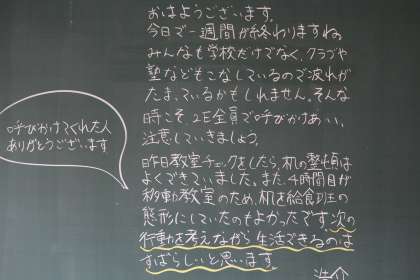 おはようございます。
今日で一週間が終わりますね。
みんなも学校だけでなく、クラブや
塾などもこなしているので疲れが
たまっているかもしれません。そんな
時こそ、2E全員で呼びかけあい、
注意していきましょう。
昨日教室チェックをしたら、机の整頓は
よくできていました。また、4時間目が
移動教室のため、机を給食班の
態形にしていたのもよかったです。次の
行動を考えながら生活できるのは
すばらしいと思います。
浩介
呼びかけてくれた人
ありがとうございます